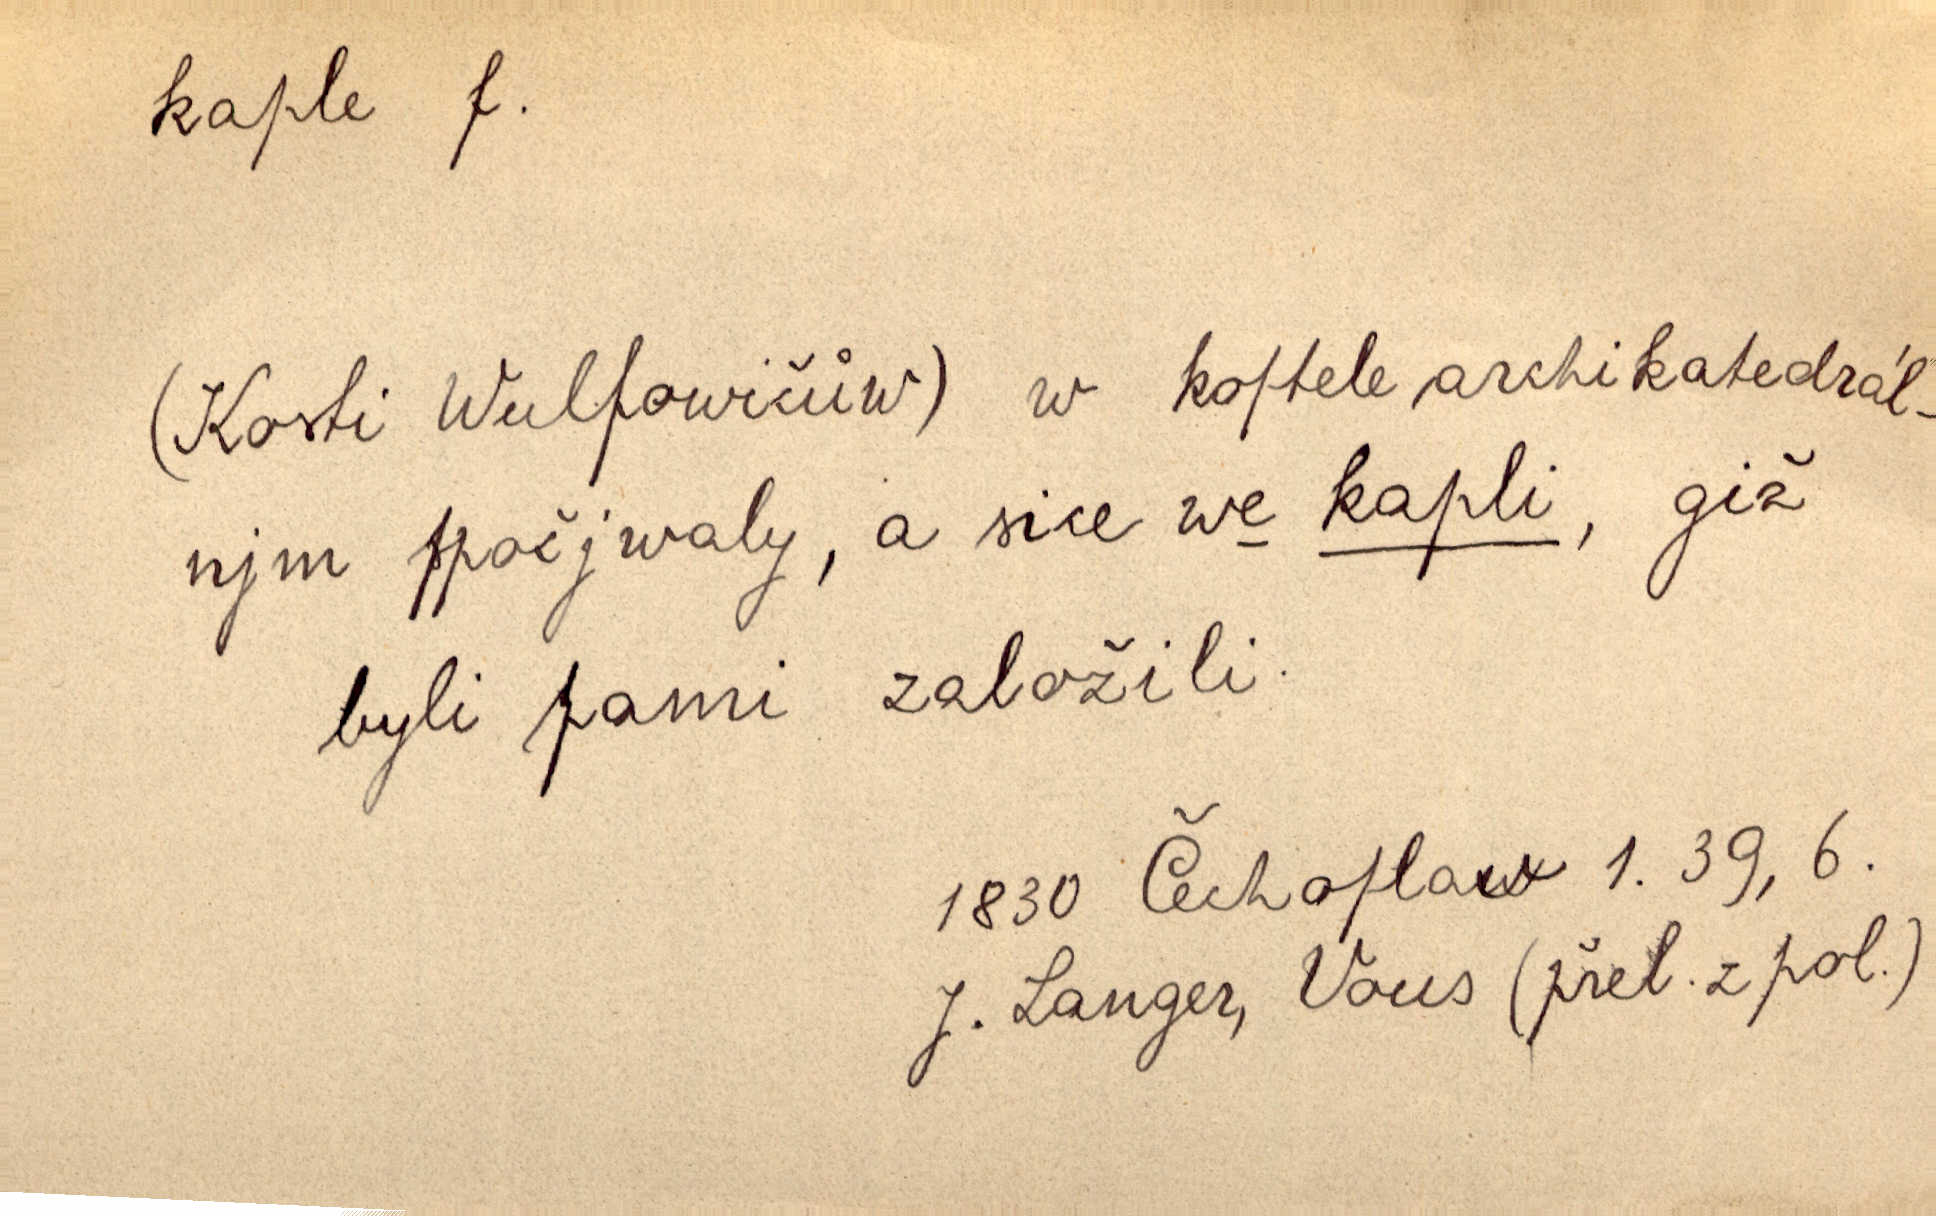 kaple f.
(Kosti Wulfowičůw) w koſtele archikatedrál-
njm ſpočjwaly, a sice we kapli, giž
byli ſami založili.
1830 Čechoſlaw 1. 39, 6.
J. Langer, Vous (přel. z pol.)